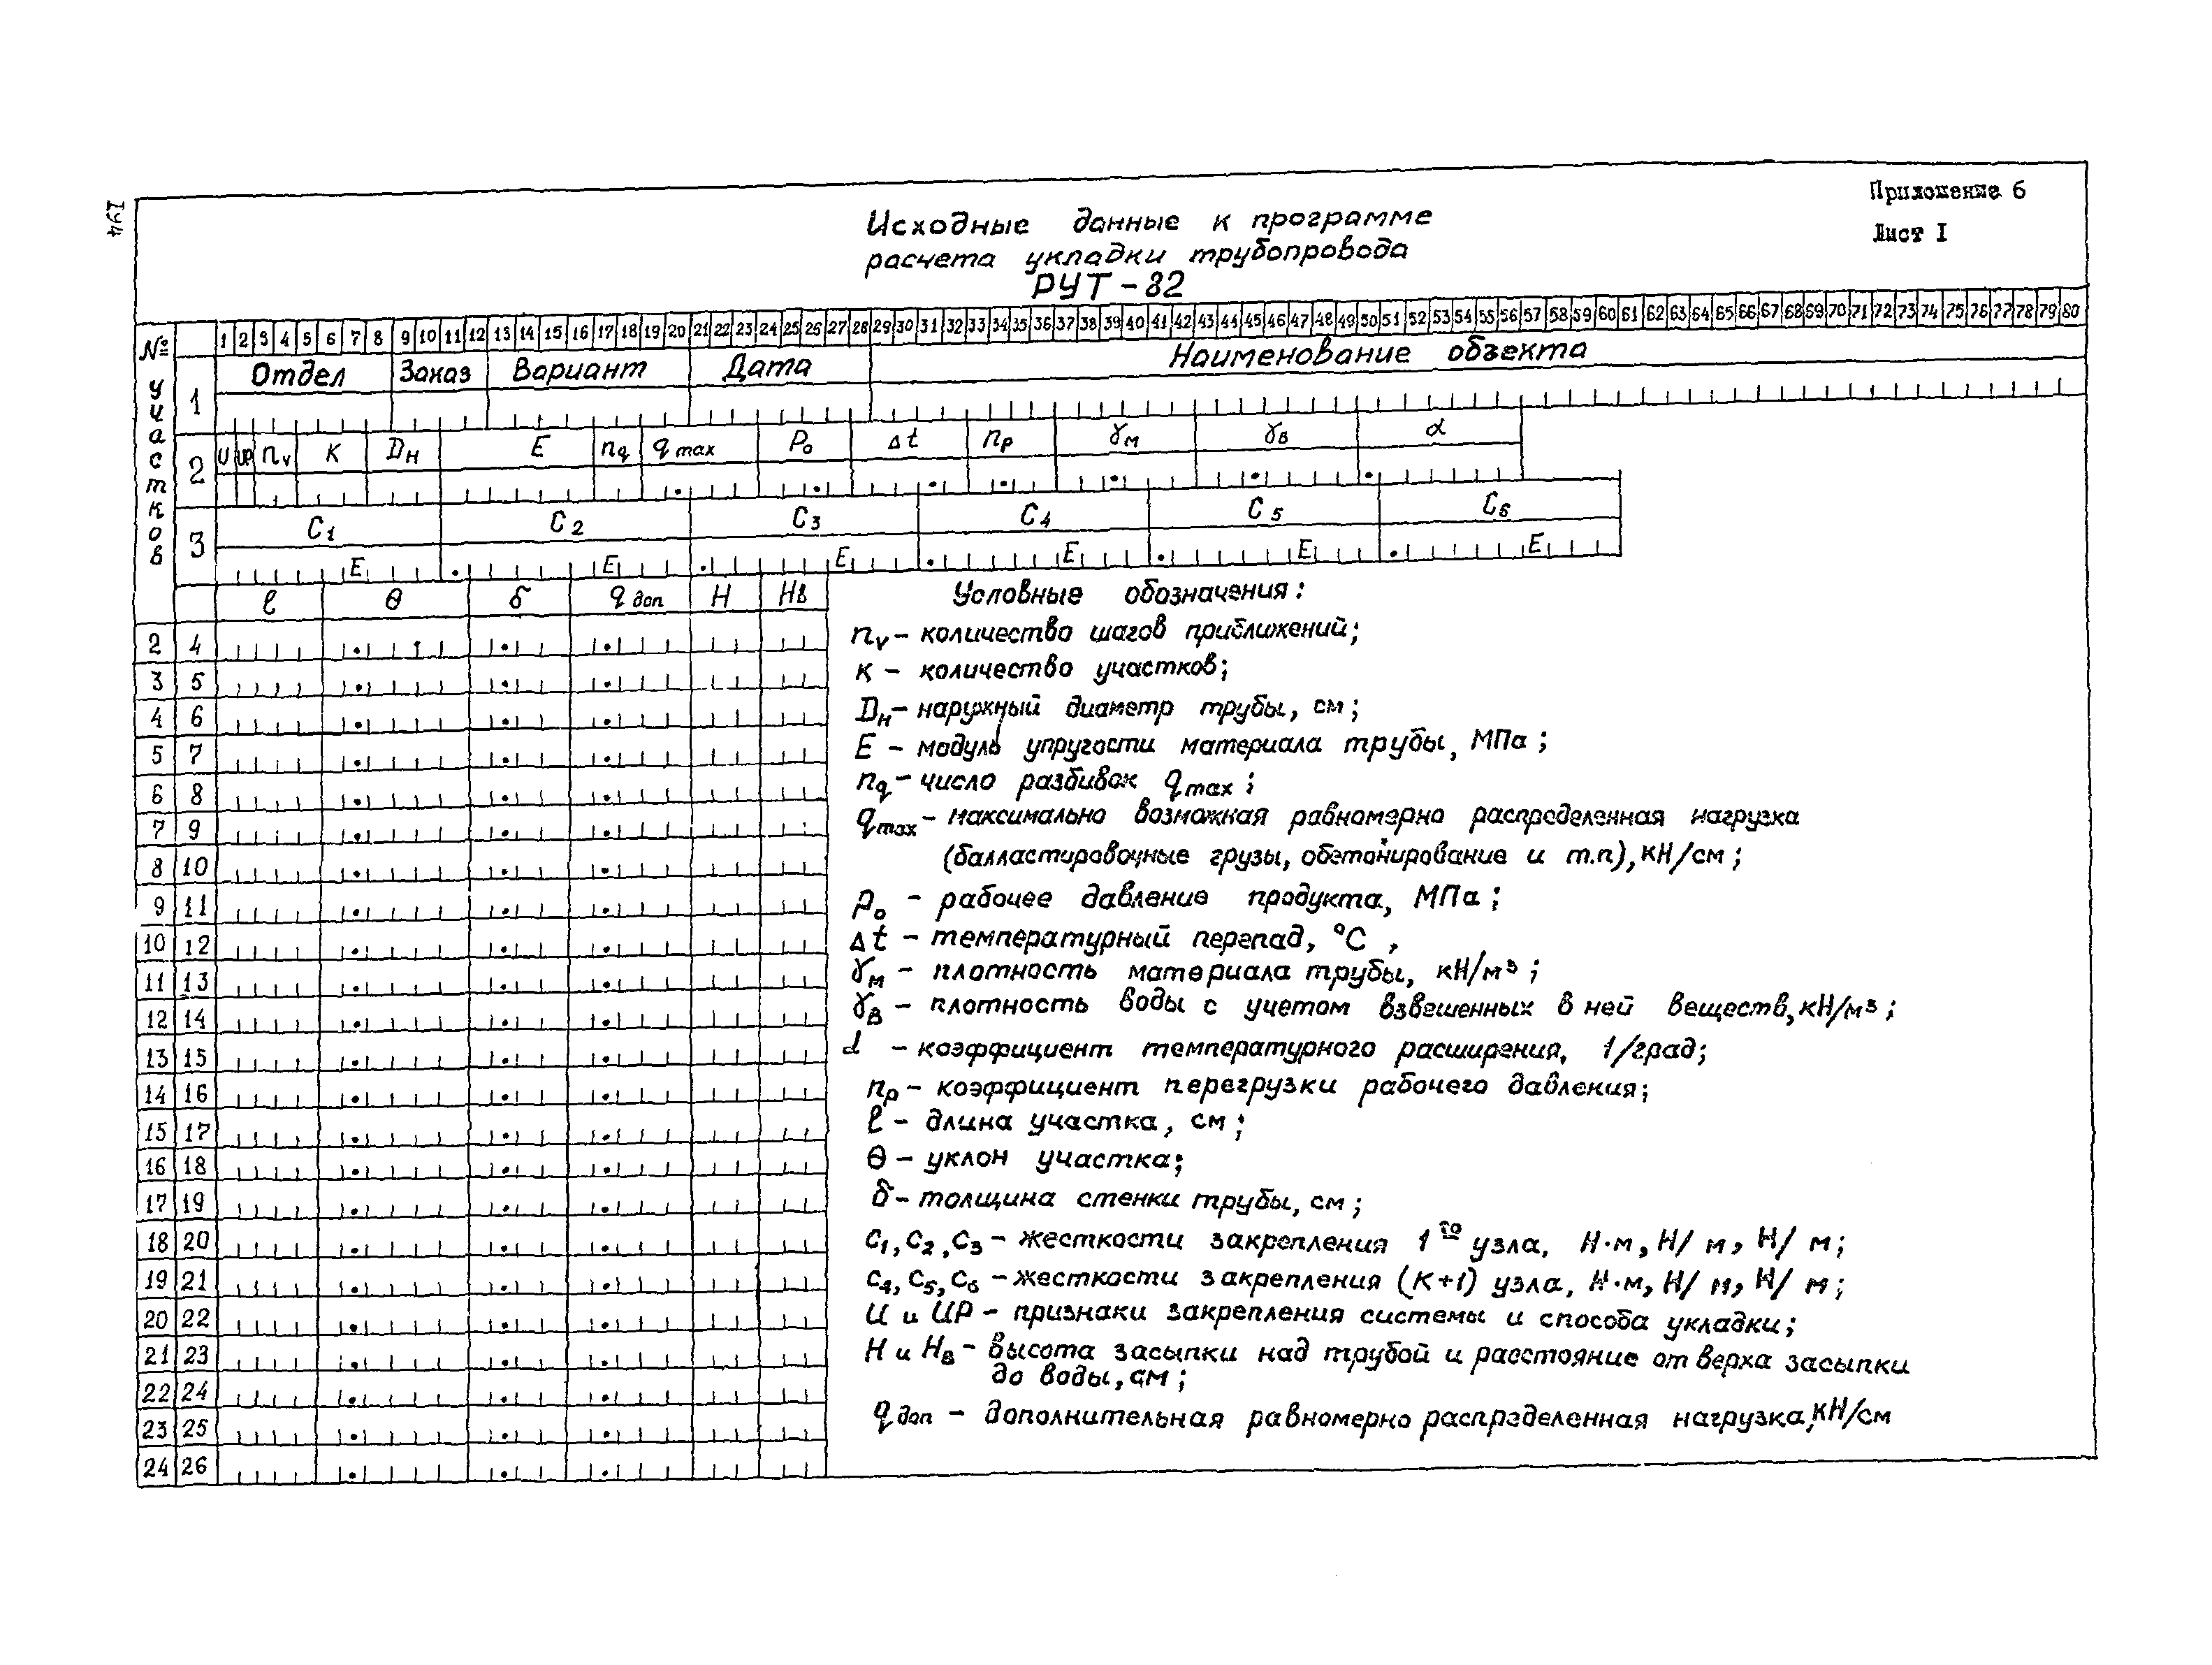 Приложение 6
Лист I
194
Исходные данные к программе
расчета укладки трубопровода
РУТ-82
№ участков
1 2 3 4 5 6 7 8 9 10 11 12 13 14 15 16 17 18 19 20 21 22 23 24 25 26 27 28 29 30 31 32 33 34 35 36 37 38 39 40 41 42 43 44 45 46 47 48 49 50 51 52 53 54 55 56 57 58 59 60 61 62 63 64 65 66 67 68 69 70 71 72 73 74 75 76 77 78 79 80
1 Отдел Заказ Вариант Дата Наименование объекта
2 U UP nv K Dн E nq qmax Po Δt np γм γв α
3 C1 C2 C3 C4 C5 C6
E E E E E E
ℓ θ δ qдоп H Hв
2 4
3 5
4 6
5 7
6 8
7 9
8 10
9 11
10 12
11 13
12 14
13 15
14 16
15 17
16 18
17 19
18 20
19 21
20 22
21 23
22 24
23 25
24 26
Условные обозначения:
nv – количество шагов приближений;
K – количество участков;
Dн – наружный диаметр трубы, см;
E – модуль упругости материала трубы, МПа;
nq – число разбивок qmax;
qmax – максимально возможная равномерно распределенная нагрузка
(балластировочные грузы, обетонирование и т.п), кН/см;
Po – рабочее давление продукта, МПа;
Δt – температурный перепад, °С,
γм – плотность материала трубы, кН/м³;
γв – плотность воды с учетом взвешенных в ней веществ, кН/м³;
α – коэффициент температурного расширения, 1/град;
np – коэффициент перегрузки рабочего давления;
ℓ – длина участка, см;
θ – уклон участка;
δ – толщина стенки трубы, см;
C1, C2, C3 – жесткости закрепления 1го узла, Н·м, Н/м, Н/м;
C4, C5, C6 – жесткости закрепления (K+1) узла, Н·м, Н/м, Н/м;
U и UP – признаки закрепления системы и способа укладки;
H и Hв – высота засыпки над трубой и расстояние от верха засыпки
до воды, см;
qдоп – дополнительная равномерно распределенная нагрузка, кН/см